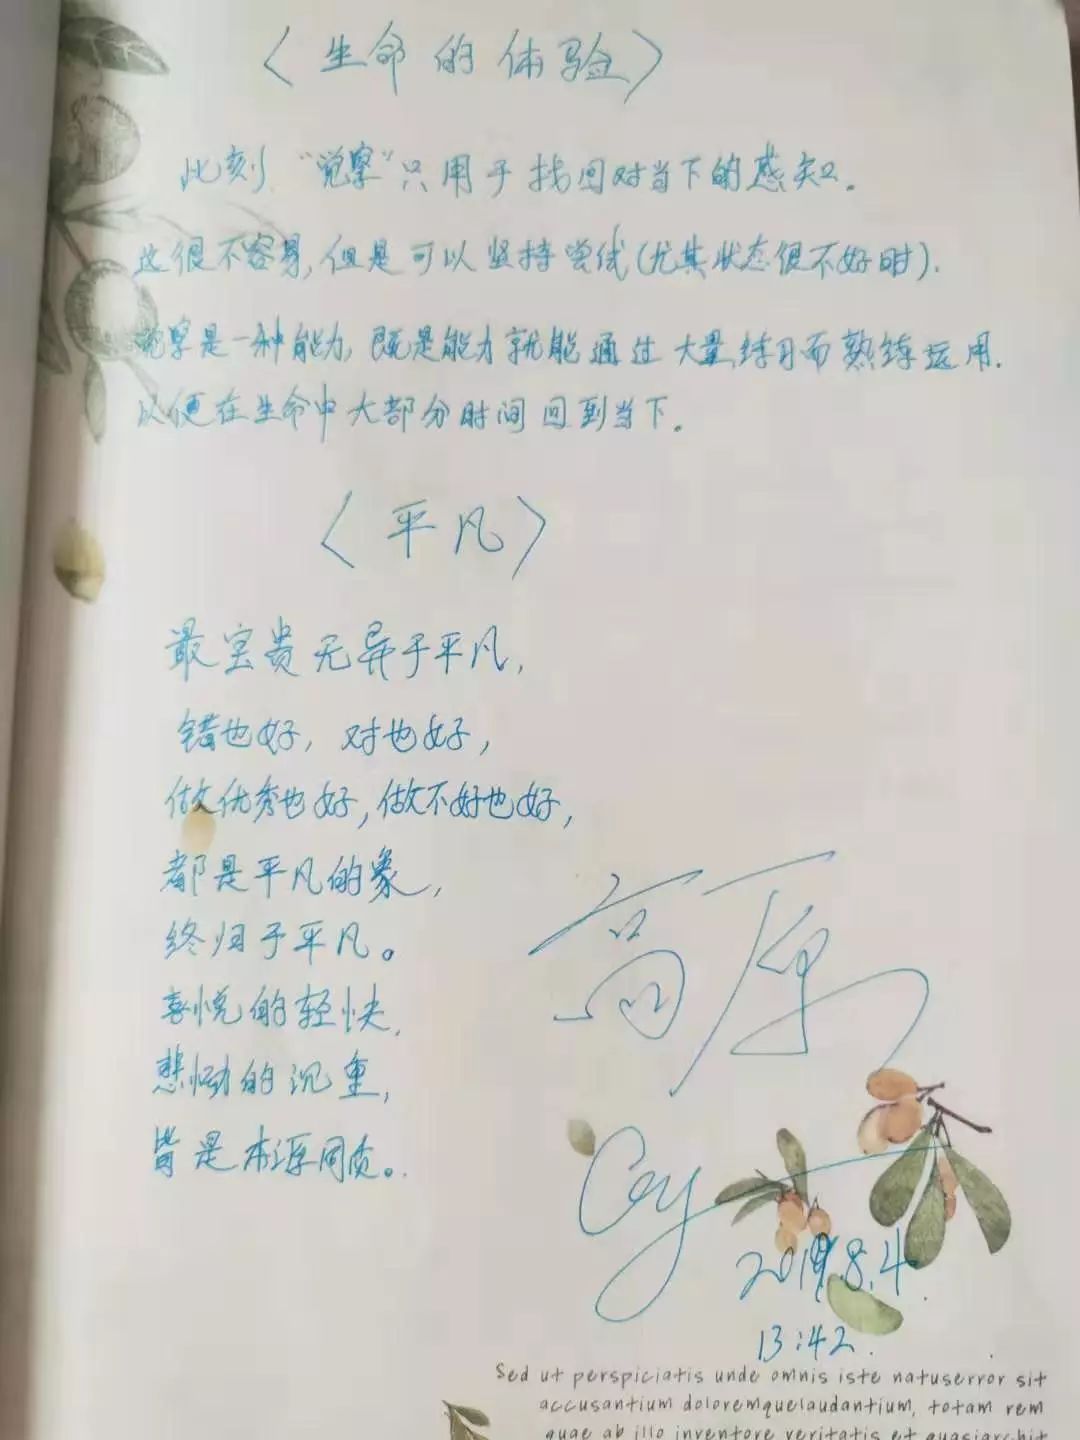 〈生命的体验〉
此刻“觉察”只用于找回对当下的感知。
这很不容易,但是可以坚持尝试(尤其状态很不好时).
觉察是一种能力,既是能力就能通过大量练习而熟练运用.
以便在生命中大部分时间回到当下。
〈平凡〉
最宝贵无异于平凡,
错也好,对也好,
做优秀也好,做不好也好,
都是平凡的象,
终归于平凡。
喜悦的轻快,
悲恸的沉重,
皆是本源同质。
高原
2019.8.4.
13:42.
Sed ut perspiciatis unde omnis iste natuserror sit
accusantium doloremquelaudantium, totam rem
quae ab illo inventore veritatis et quasiarchit